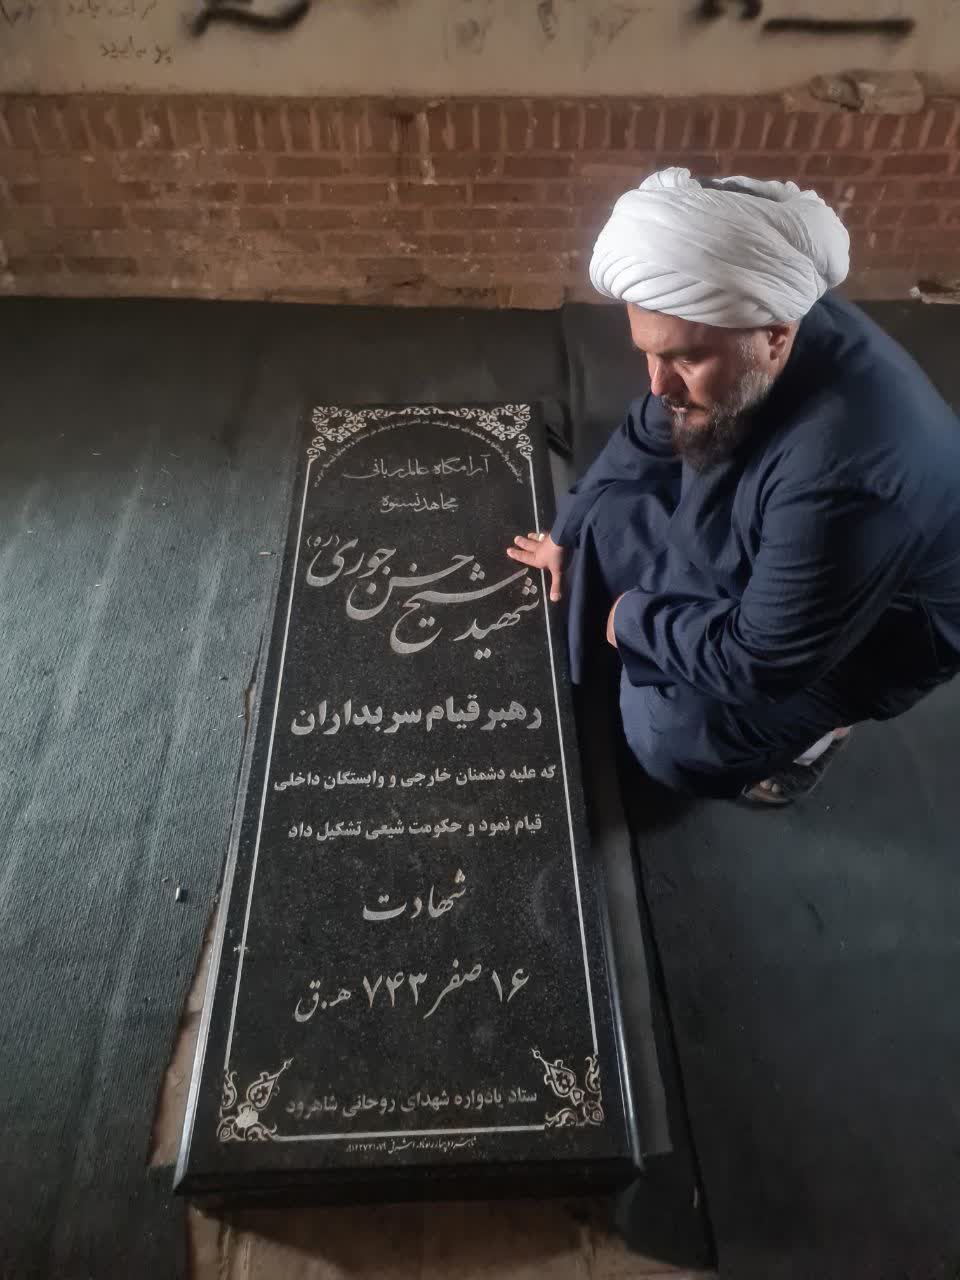 بو سایید
آرامگاه عالم ربانی
مجاهد نستوه
شهید شیخ حسن جوری (ره)
رهبر قیام سربداران
که علیه دشمنان خارجی و وابستگان داخلی
قیام نمود و حکومت شیعی تشکیل داد
شهادت
۱۶ صفر ۷۴۳ ه.ق
ستاد یادواره شهدای روحانی شاهرود